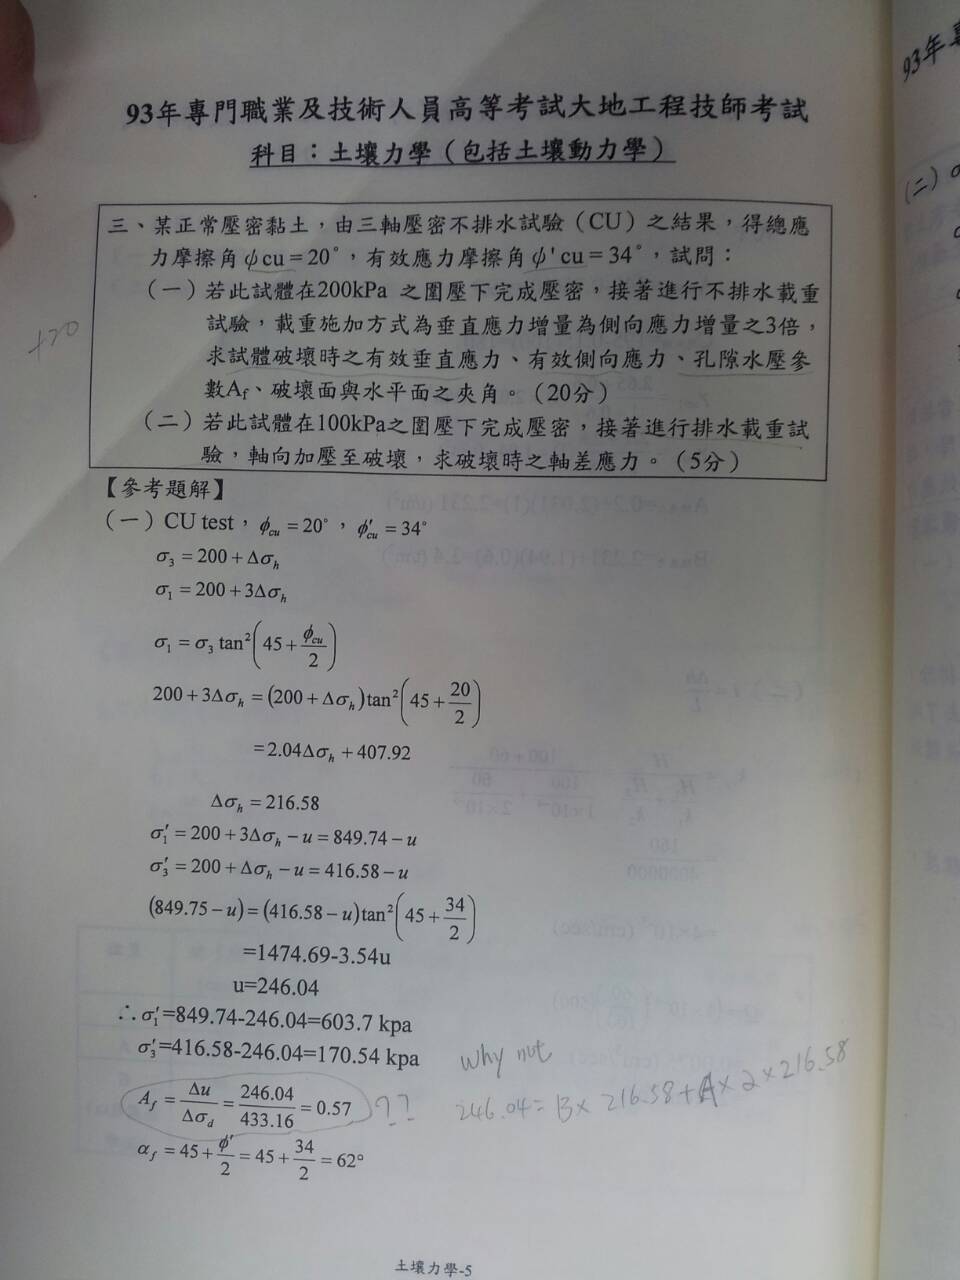 93年專門職業及技術人員高等考試大地工程技師考試
科目：土壤力學（包括土壤動力學）
三、某正常壓密黏土，由三軸壓密不排水試驗（CU）之結果，得總應
力摩擦角φcu＝20°，有效應力摩擦角φ'cu＝34°，試問：
（一）若此試體在200kPa 之圍壓下完成壓密，接著進行不排水載重
試驗，載重施加方式為垂直應力增量為側向應力增量之3倍，
求試體破壞時之有效垂直應力、有效側向應力、孔隙水壓參
數Af、破壞面與水平面之夾角。（20分）
（二）若此試體在100kPa之圍壓下完成壓密，接著進行排水載重試
驗，軸向加壓至破壞，求破壞時之軸差應力。（5分）
+20
【參考題解】
（一）CU test，φcu = 20°，φ'cu = 34°
σ3 = 200 + Δσh
σ1 = 200 + 3Δσh
σ1 = σ3 tan²(45 + φcu/2)
200 + 3Δσh = (200 + Δσh)tan²(45 + 20/2)
= 2.04Δσh + 407.92
Δσh = 216.58
σ1' = 200 + 3Δσh − u = 849.74 − u
σ3' = 200 + Δσh − u = 416.58 − u
(849.75 − u) = (416.58 − u)tan²(45 + 34/2)
=1474.69-3.54u
u=246.04
∴σ1'=849.74-246.04=603.7 kpa
σ3'=416.58-246.04=170.54 kpa
why not
Af = Δu/Δσd = 246.04/433.16 = 0.57
??
246.04 = B × 216.58 + A × 2 × 216.58
αf = 45 + φ'/2 = 45 + 34/2 = 62°
土壤力學-5
93年
（二）σ